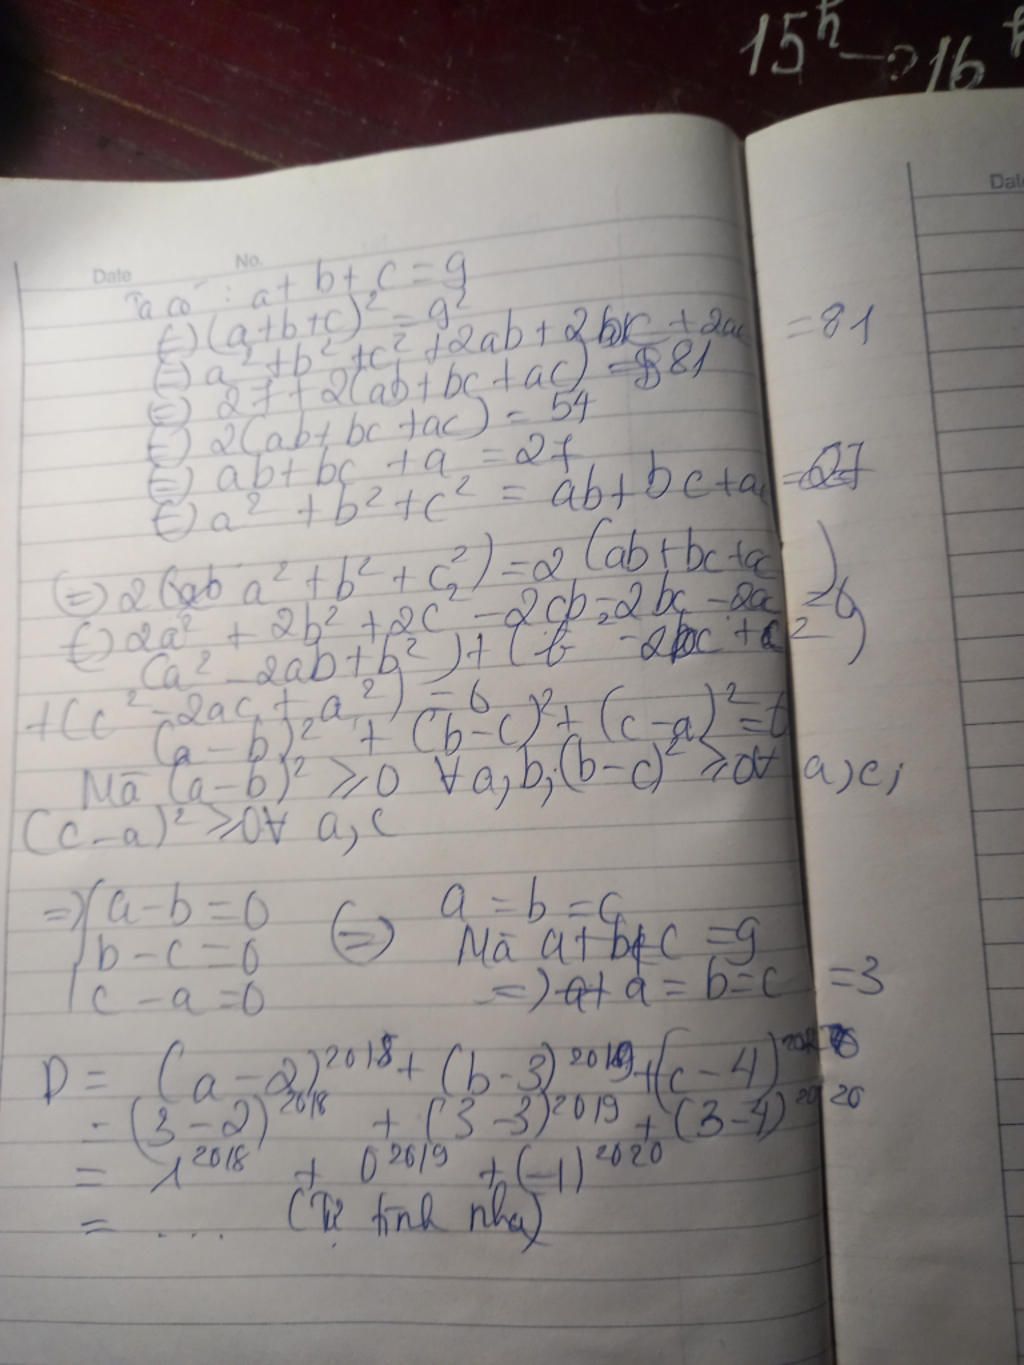 15h → 16h
Date
Date No.
Ta có : a + b + c = 9
(=) (a+b+c)² = 9²
(=) a² + b² + c² + 2ab + 2bc + 2ac = 81
(=) 27 + 2(ab + bc + ac) = 81
(=) 2(ab + bc + ac) = 54
(=) ab + bc + a = 27
(=) a² + b² + c² = ab + bc + ac = 27
(=) 2(ab a² + b² + c²) = 2(ab + bc + ac)
(=) 2a² + 2b² + 2c² - 2cb - 2bc - 2a = 0
(a² - 2ab + b²) + (b² - 2bc + c²)
+ (c² - 2ac + a²) = 0
(a - b)² + (b - c)² + (c - a)² = 0
Mà (a - b)² ≥ 0 ∀ a, b; (b - c)² ≥ 0 ∀ a, c;
(c - a)² ≥ 0 ∀ a, c
=) { a - b = 0 (=) a = b = c
b - c = 0 Mà a + b + c = 9
c - a = 0 =) a + a = b = c = 3
D = (a - 2)²⁰¹⁸ + (b - 3)²⁰¹⁹ + (c - 4)²⁰²⁰
= (3 - 2)²⁰¹⁸ + (3 - 3)²⁰¹⁹ + (3 - 4)²⁰²⁰
= 1²⁰¹⁸ + 0²⁰¹⁹ + (-1)²⁰²⁰
= .... (Tự tính nha)